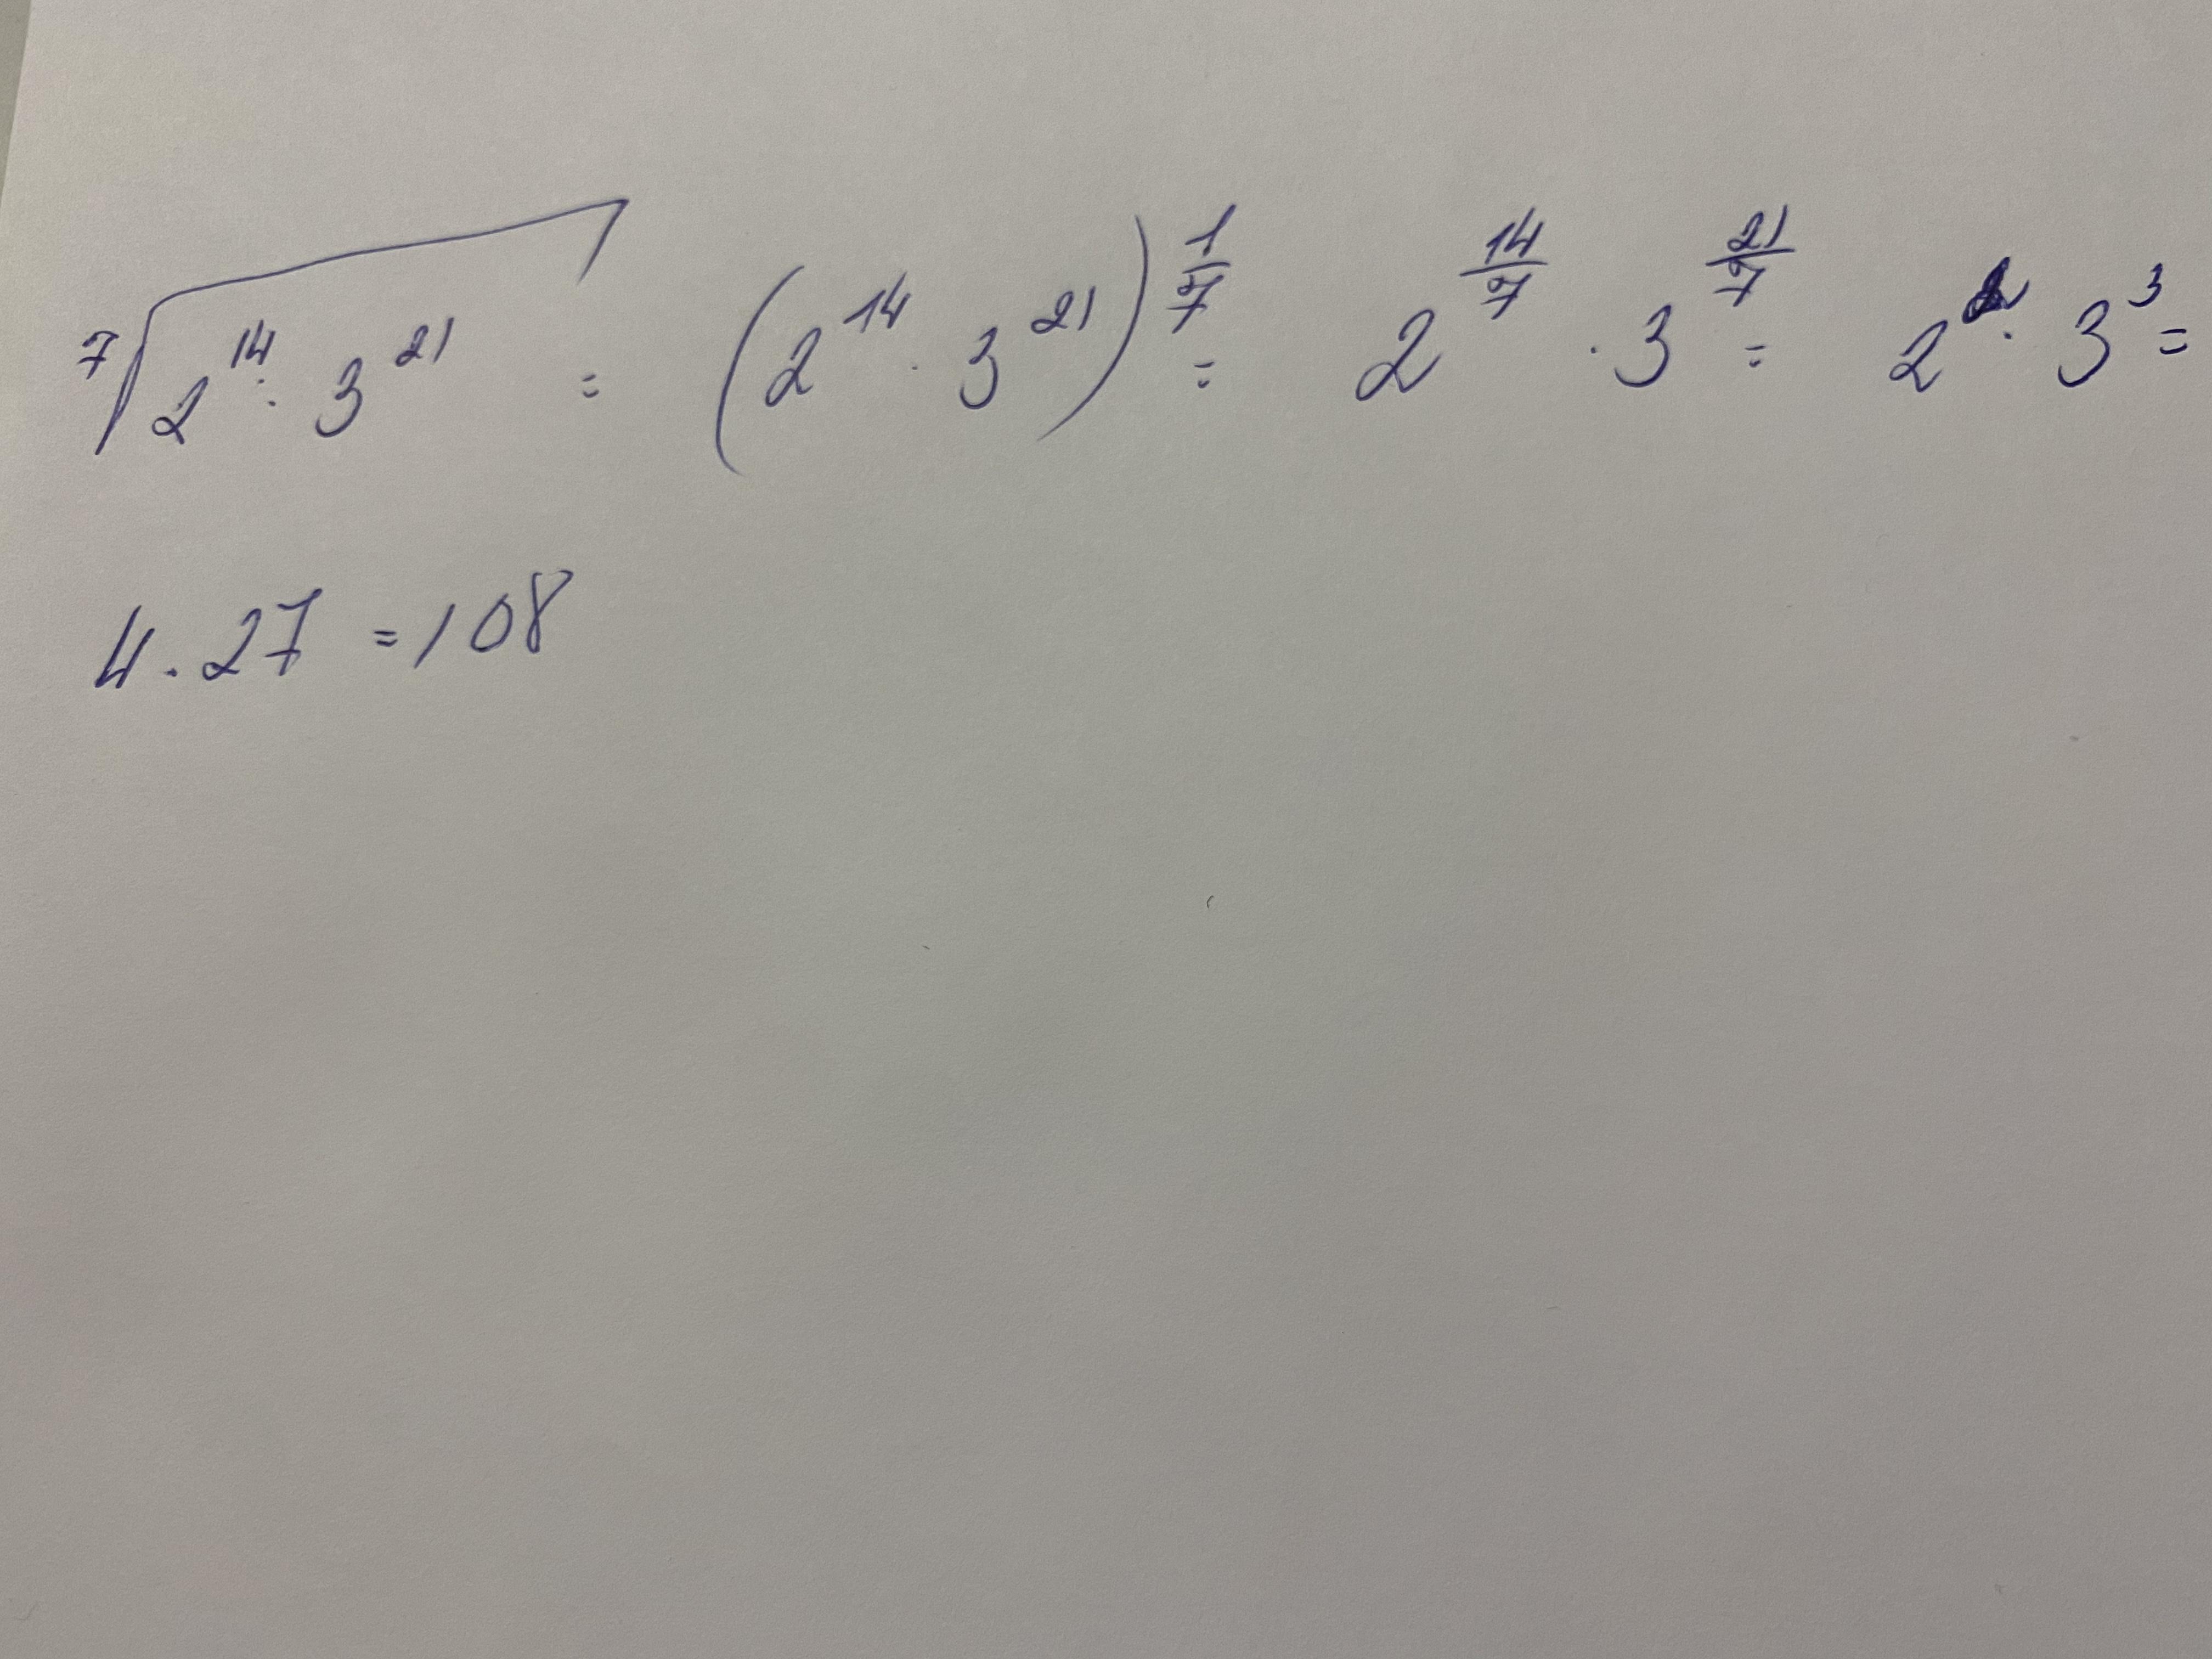 ⁷√(2¹⁴ · 3²¹) = (2¹⁴ · 3²¹)^(1/7) = 2^(14/7) · 3^(21/7) = 2² · 3³ =
4 · 27 = 108